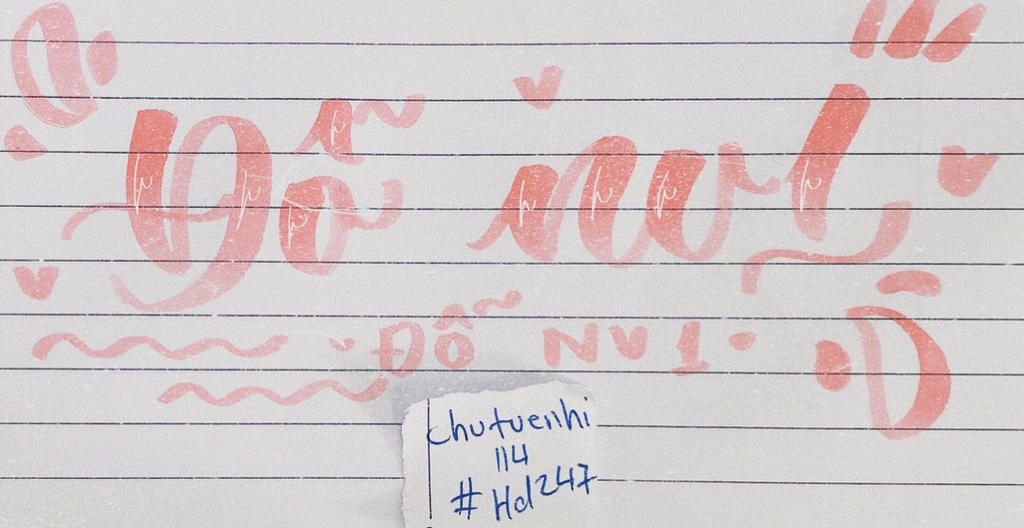 Đỗ nv1
ĐỖ NV1
chutuenhi
114
#Hd247